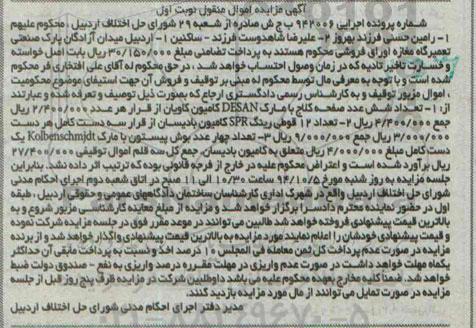 آگهی مزایده اموال منقول نوبت اول
شماره پرونده اجرایی ۹۴۲۰۰۶ ج ش صادره از شعبه ۲۹ شورای حل اختلاف اردبیل، محکوم علیهم
۱- رامین حسنی فرزند بهروز ۲- علیرضا شاهدوست فرزند - ساکنین ۱- اردبیل میدان آزادگان پارک صنعتی
تعمیرگاه مغازه اوراق فروشی محکوم هستند به پرداخت تضامنی مبلغ ۳۰/۱۵۰/۰۰۰ ریال بابت اصل خواسته
خسارات تاخیر تادیه که در زمان وصول احتساب خواهد شد. در حق محکوم له آقای علی افتخاری فر محکوم
شده است و با توجه به معرفی مال توسط محکوم له مبنی بر توقیف و فروش آن جهت استیفای موضوع محکومیت
، اموال مزبور توقیف و به کارشناس رسمی دادگستری ارجاع که بشرح ذیل توصیف و تعرفه شده و عبارتند
از: ۱- تعداد شش عدد صفحه کلاج با مارک DESAN کامیون کاویان از قرار هر عدد ۲/۴۰۰/۰۰۰ ریال
جمع ۴/۴۰۰/۰۰۰ ریال ۲- تعداد ۱۲ قوطی رینگ SPR کامیون بادیسان از قرار سه دست کامل هر دست
۳/۰۰۰/۰۰۰ ریال جمع ۹/۰۰۰/۰۰۰ ریال ۳- تعداد چهار عدد بوش پیستون با مارک Kolbenschmidt یک
دست کامل مبلغ ۴/۰۰۰/۰۰۰ ریال متعلق به کامیون بادیسان جمع کل سه قلم اموال توقیفی ۲۷/۴۰۰/۰۰۰
ریال برآورد شده است و اعتراض محکوم علیه در خارج از فرجه قانونی بوده که ترتیب اثر داده نشد. بنابراین
جلسه مزایده به روز شنبه مورخ ۹۴/۱۰/۵ ساعت ۱۰/۳۰ الی ۱۱ صبح در اتاق شعبه دوم اجرای احکام مدنی
شورای حل اختلاف اردبیل واقع در شهرک اداری کارشناسان ساختمان دادگاههای عمومی و حقوقی اردبیل، طبقه
اول در حضور نماینده محترم دادسرا برگزار خواهد شد. و مزایده از مبلغ معاینه کارشناسی مزبور شروع و به
بالاترین قیمت پیشنهادی فروخته خواهد شد طالبین می توانند در موعد مقرر فوق در جلسه مزایده شرکت نموده
و قیمت پیشنهادی خودشان را اعلام نمایند مورد مزایده به بالاترین قیمت پیشنهادی واگذار خواهد شد و از برنده
مزایده در صورت عدم پرداخت کل ثمن معامله فی المجلس ۱۰ درصد اخذ و نسبت به پرداخت مابقی آن حداکثر
یکماه مهلت خواهد داشت در صورت عدم واریزی در مهلت مقرره درصد واریزی به نفع - صندوق دولت ضبط
خواهد شد. ضمنا کلیه مخارج بعهده محکوم علیه می باشد داوطلبین شرکت در مزایده ظرف پنج روز قبل از جلسه
مزایده در صورت تمایل می توانند از مال مورد مزایده بازدید کنند.
مدیر دفتر اجرای احکام مدنی شورای حل اختلاف اردبیل